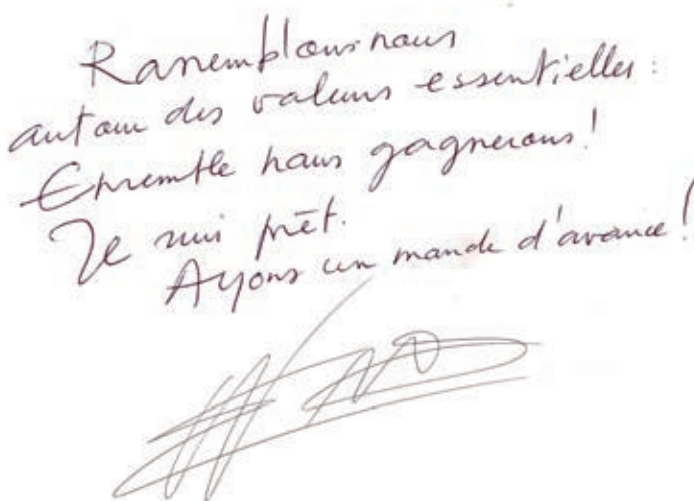 Rassemblons-nous
autour des valeurs essentielles :
Ensemble nous gagnerons !
Je suis prêt.
Ayons un monde d'avance !